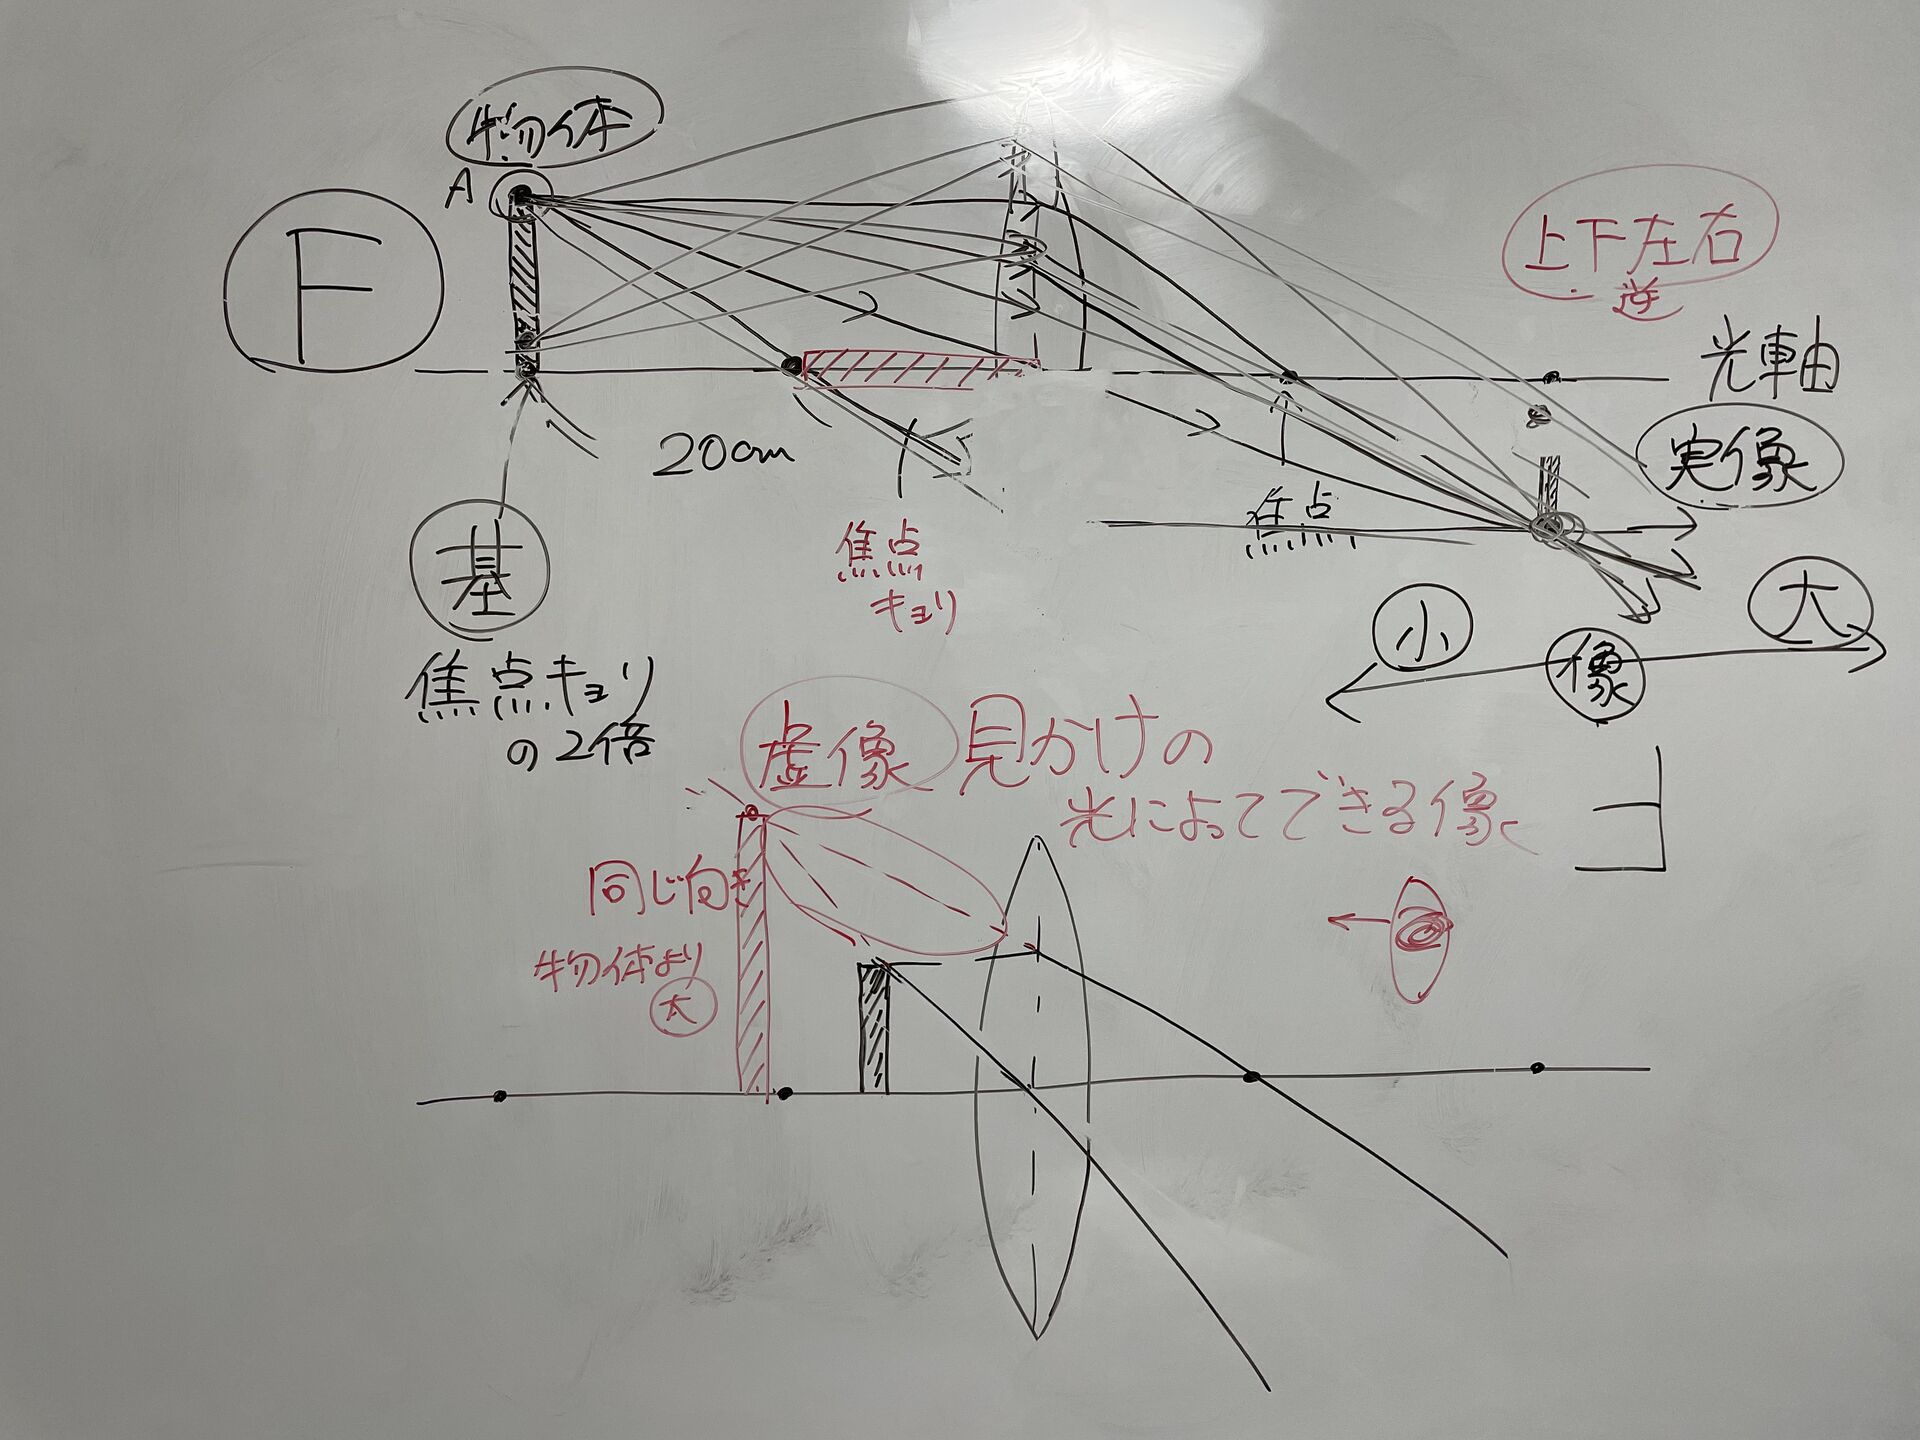 物体
A
F
上下左右
逆
光軸
実像
20cm
焦点
焦点
キョリ
基
焦点キョリ
の2倍
小
像
大
虚像 見かけの
光によってできる像
同じ向き
物体より
大